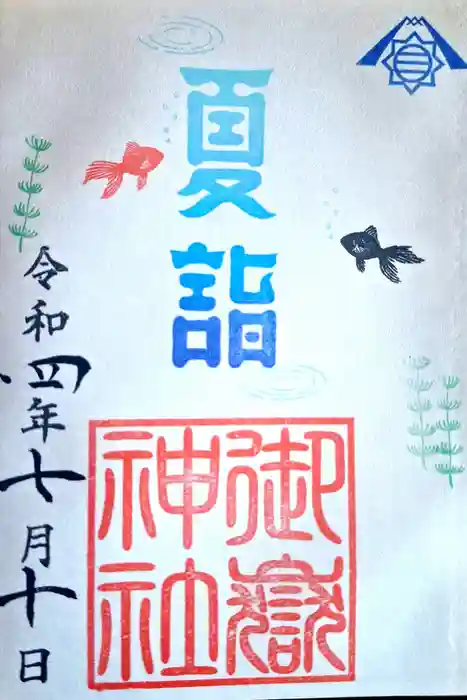 夏詣
御嶽
神社
令和四年七月十日